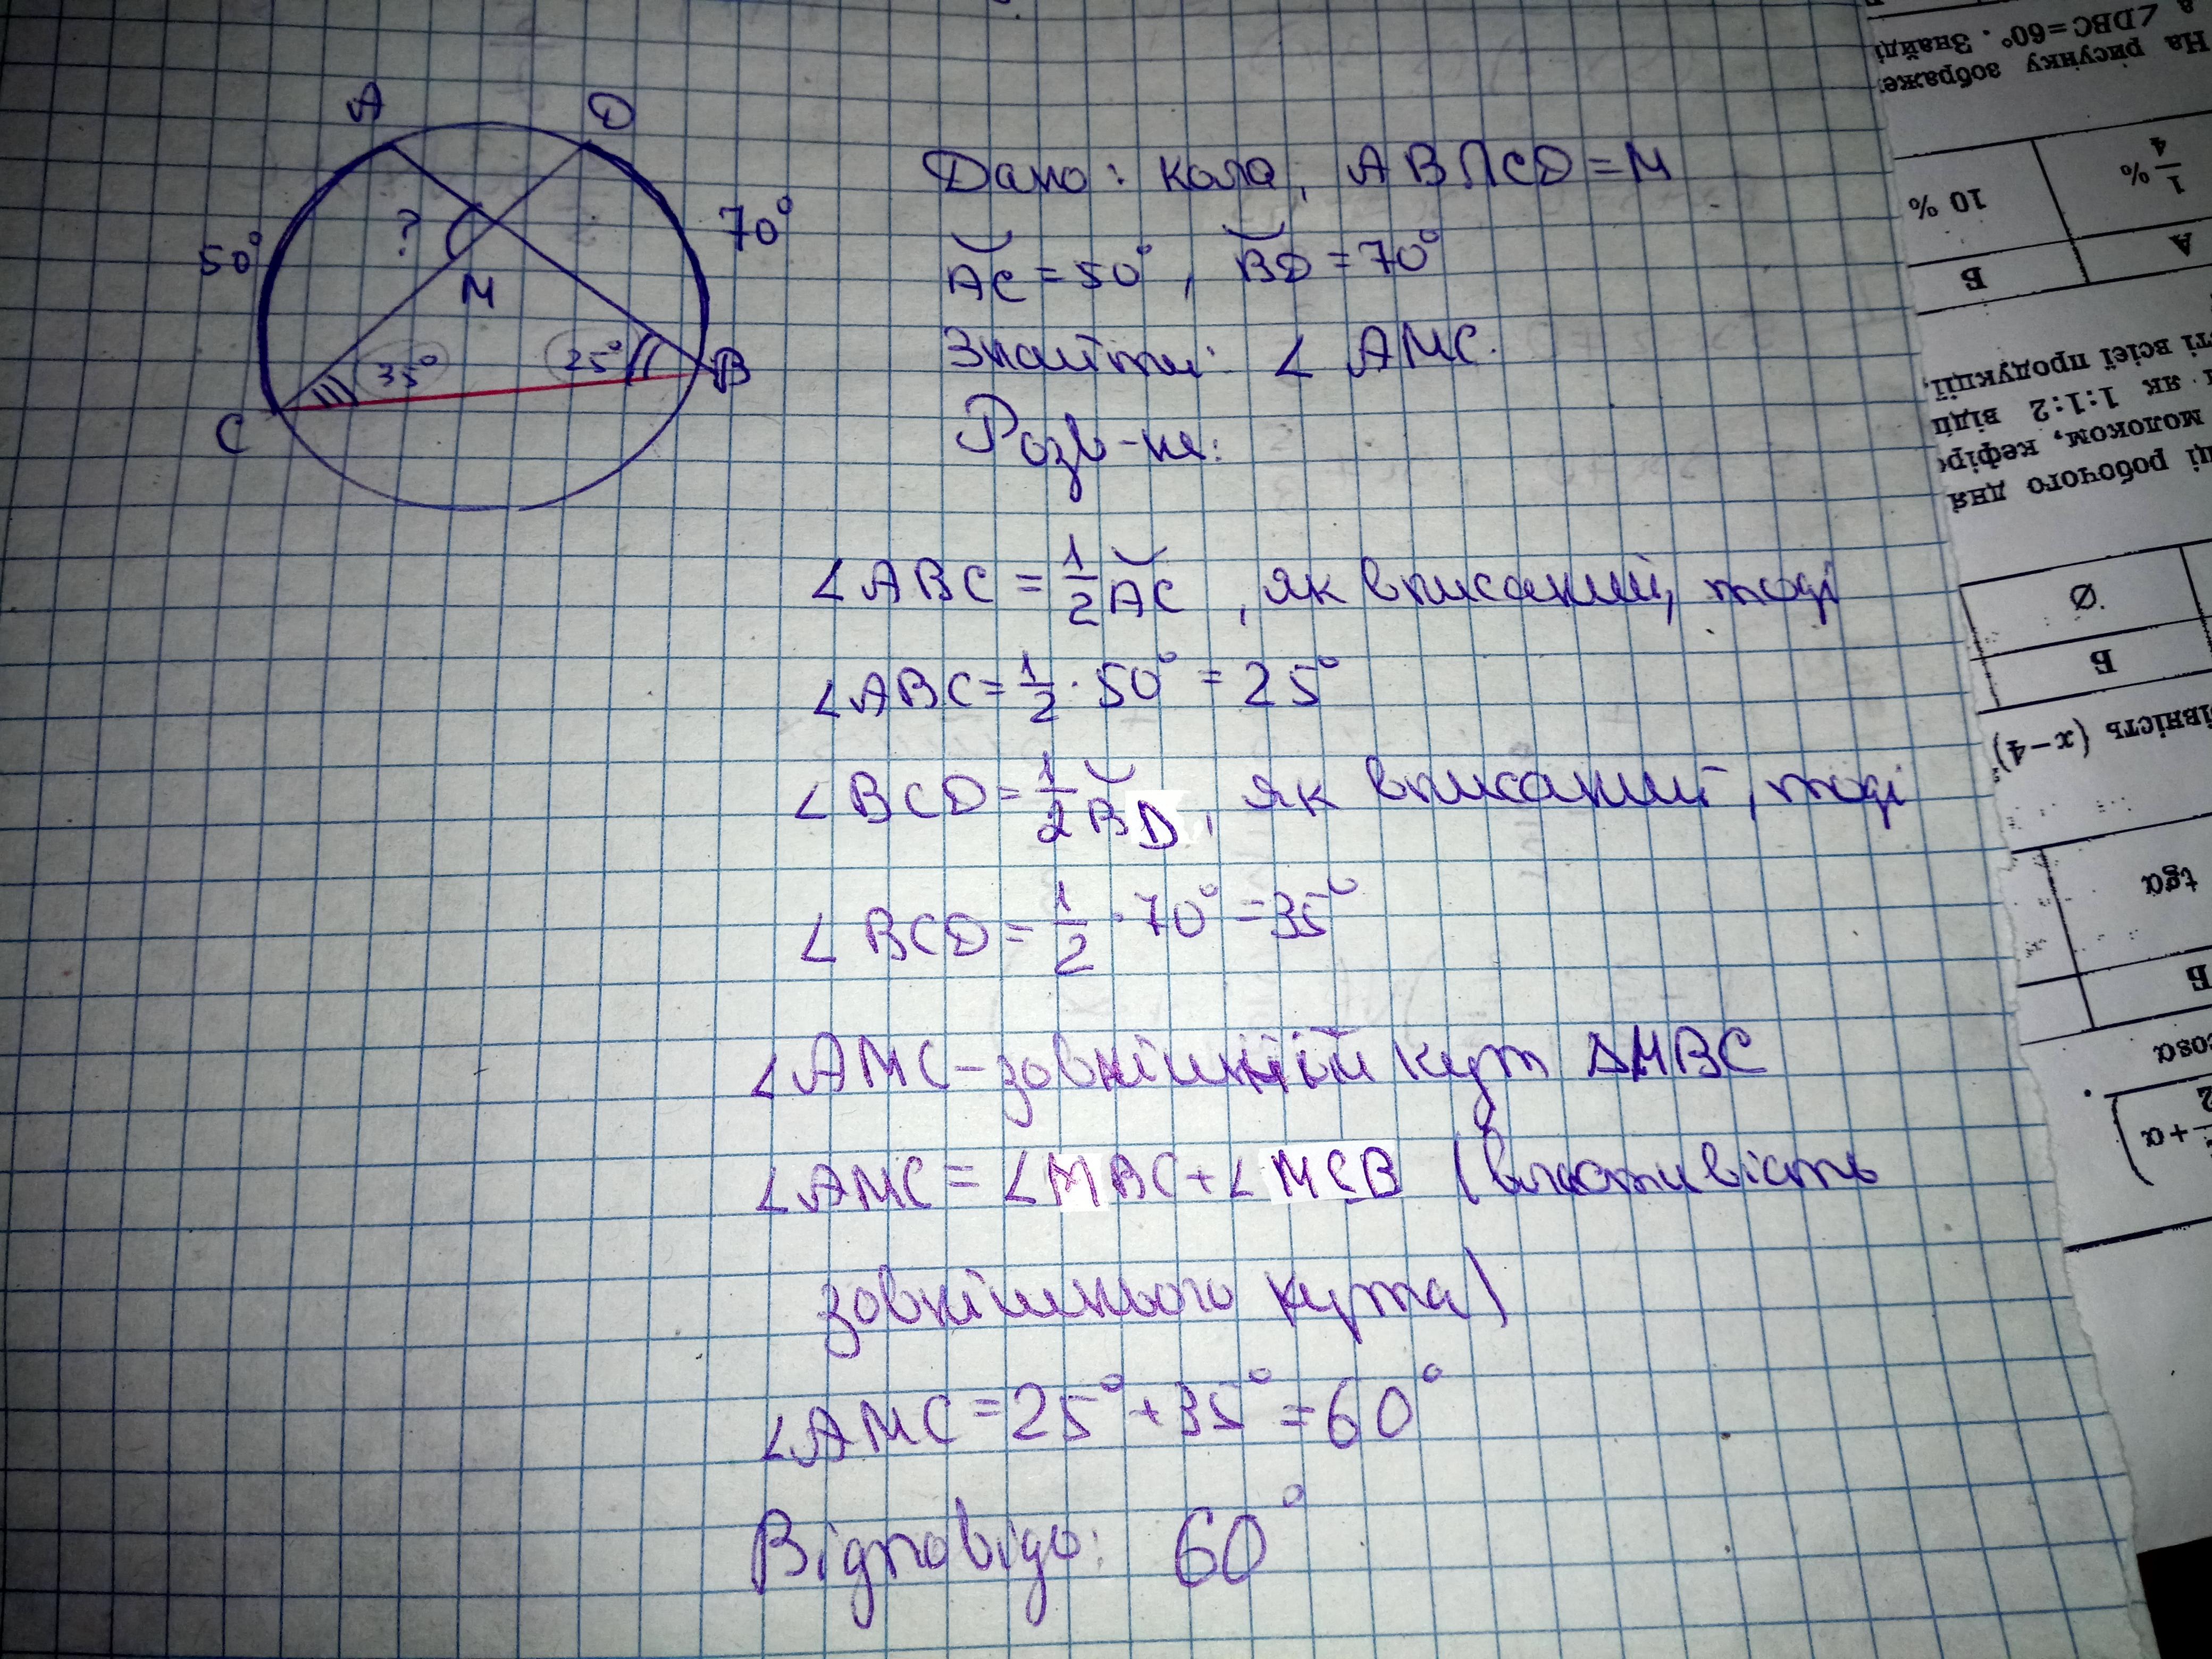 A
D
50°
?
70°
M
35°
25°
B
C
Дано: кола, AB∩CD=M
◡AC = 50°, ◡BD = 70°
Знайти: ∠ AMC.
Розв-ня:
∠ABC = 1/2 ◡AC, як вписаний, тоді
∠ABC = 1/2 · 50° = 25°
∠BCD = 1/2 ◡BD, як вписаний, тоді
∠BCD = 1/2 · 70° = 35°
∠AMC – зовнішній кут ΔMBC
∠AMC = ∠MBC + ∠MCB (властивість
зовнішнього кута)
∠AMC = 25° + 35° = 60°
Відповідь: 60°
На рисунку зображе
∠DBC=60°. Знайді
А
Б
1/4 %
10 %
ці робочого дня
молоком, кефір
як 1:1:2 відп
ті всієї продукції.
Б
Ø
івність (x−4)
Б
tgα
cosα
+α)